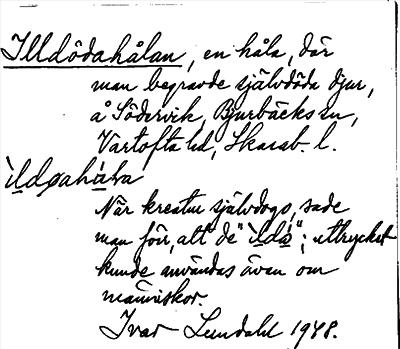 Illdödahålan, en håla, där
man begravde självdöda djur,
å Södervik, Bjurbäcks sn,
Vartofta hd, Skarab. l.
ìldøahàla
När kreatur självdogo, sade
man förr, att de "ìldø"; uttrycket
kunde användas ävan om
människor.
Ivar Lundahl 1948.